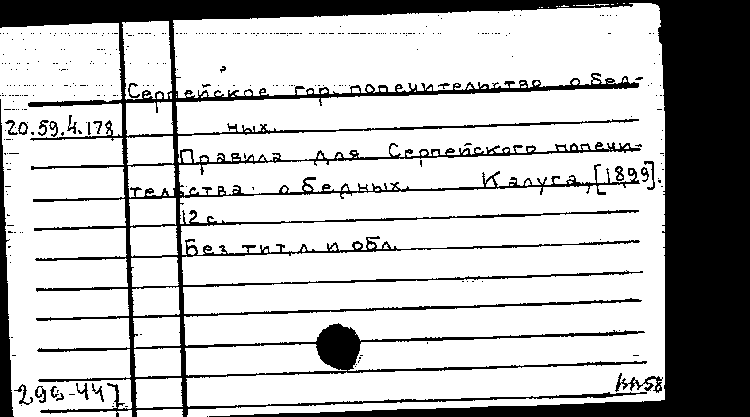 Серпейское гор. попечительство о бед-
20.59.4.178 ных.
Правила для Серпейского попечи-
тельства о бедных. Калуга, [1899].
12 с.
Без тит. л. и обл.
299-447